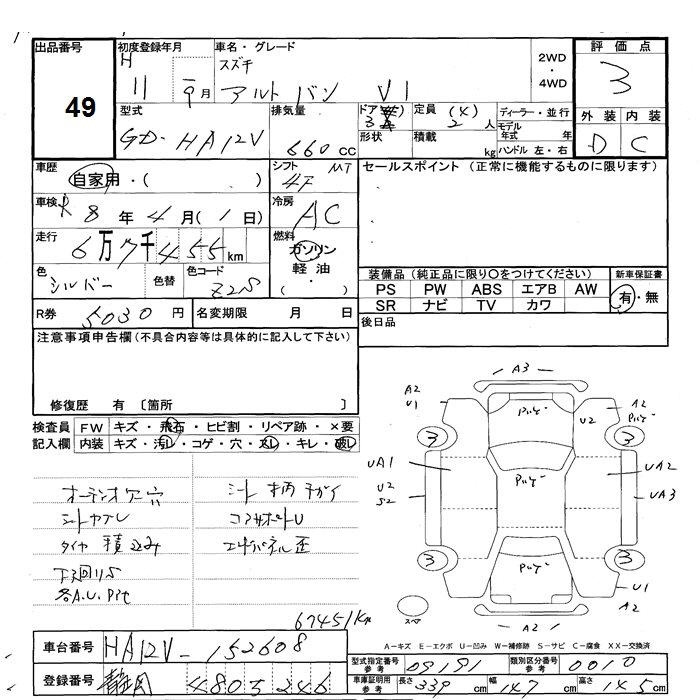 出品番号 初度登録年月 車名・グレード 2WD・4WD 評価点
49 H 11年 9月 スズキ アルト バン V1 3
型式 排気量 ドア 形状 定員 積載 ディーラー・並行 外装 内装
GD-HA12V 660cc 3 (4) 2人 kg モデル年式 年 ハンドル 左・右 D C
車歴 自家用・( ) シフト MT セールスポイント (正常に機能するものに限ります)
4F
車検 R8年4月(1日) 冷房 AC
走行 6万7千455km 燃料 ガソリン 軽油 ・( )
色 シルバー 色替 色コード Z2S 装備品(純正品に限り○をつけてください) 新車保証書
PS PW ABS エアB AW 有・無
SR ナビ TV カワ
R券 5030円 名変期限 月 日 後日品
注意事項申告欄(不具合内容等は具体的に記入して下さい)
修復歴 有 〔箇所 〕
検査員 FW キズ・飛石・ヒビ割・リペア跡・×要
記入欄 内装 キズ・汚れ・コゲ・穴・スレ・キレ・破れ
オーディオ欠穴 シート柄チガイ
シートカブレ コアサポートU
タイヤ積込み エンドパネル歪
下廻りS
各A.U.Pit
67451Km
A3
A2 U1 U2 A2
3 3
UA1 UA2
U2 S2 UA3
3 3
U1
A2
スペア A2
A-キズ E-エクボ U-凹み W-補修跡 S-サビ C-腐食 XX-交換済
車台番号 HA12V-152608 型式指定番号 参考 09191 類別区分番号 参考 0010
登録番号 静岡 480 5 246 車庫証明用 参考 長さ 339cm 幅 147cm 高さ 145cm